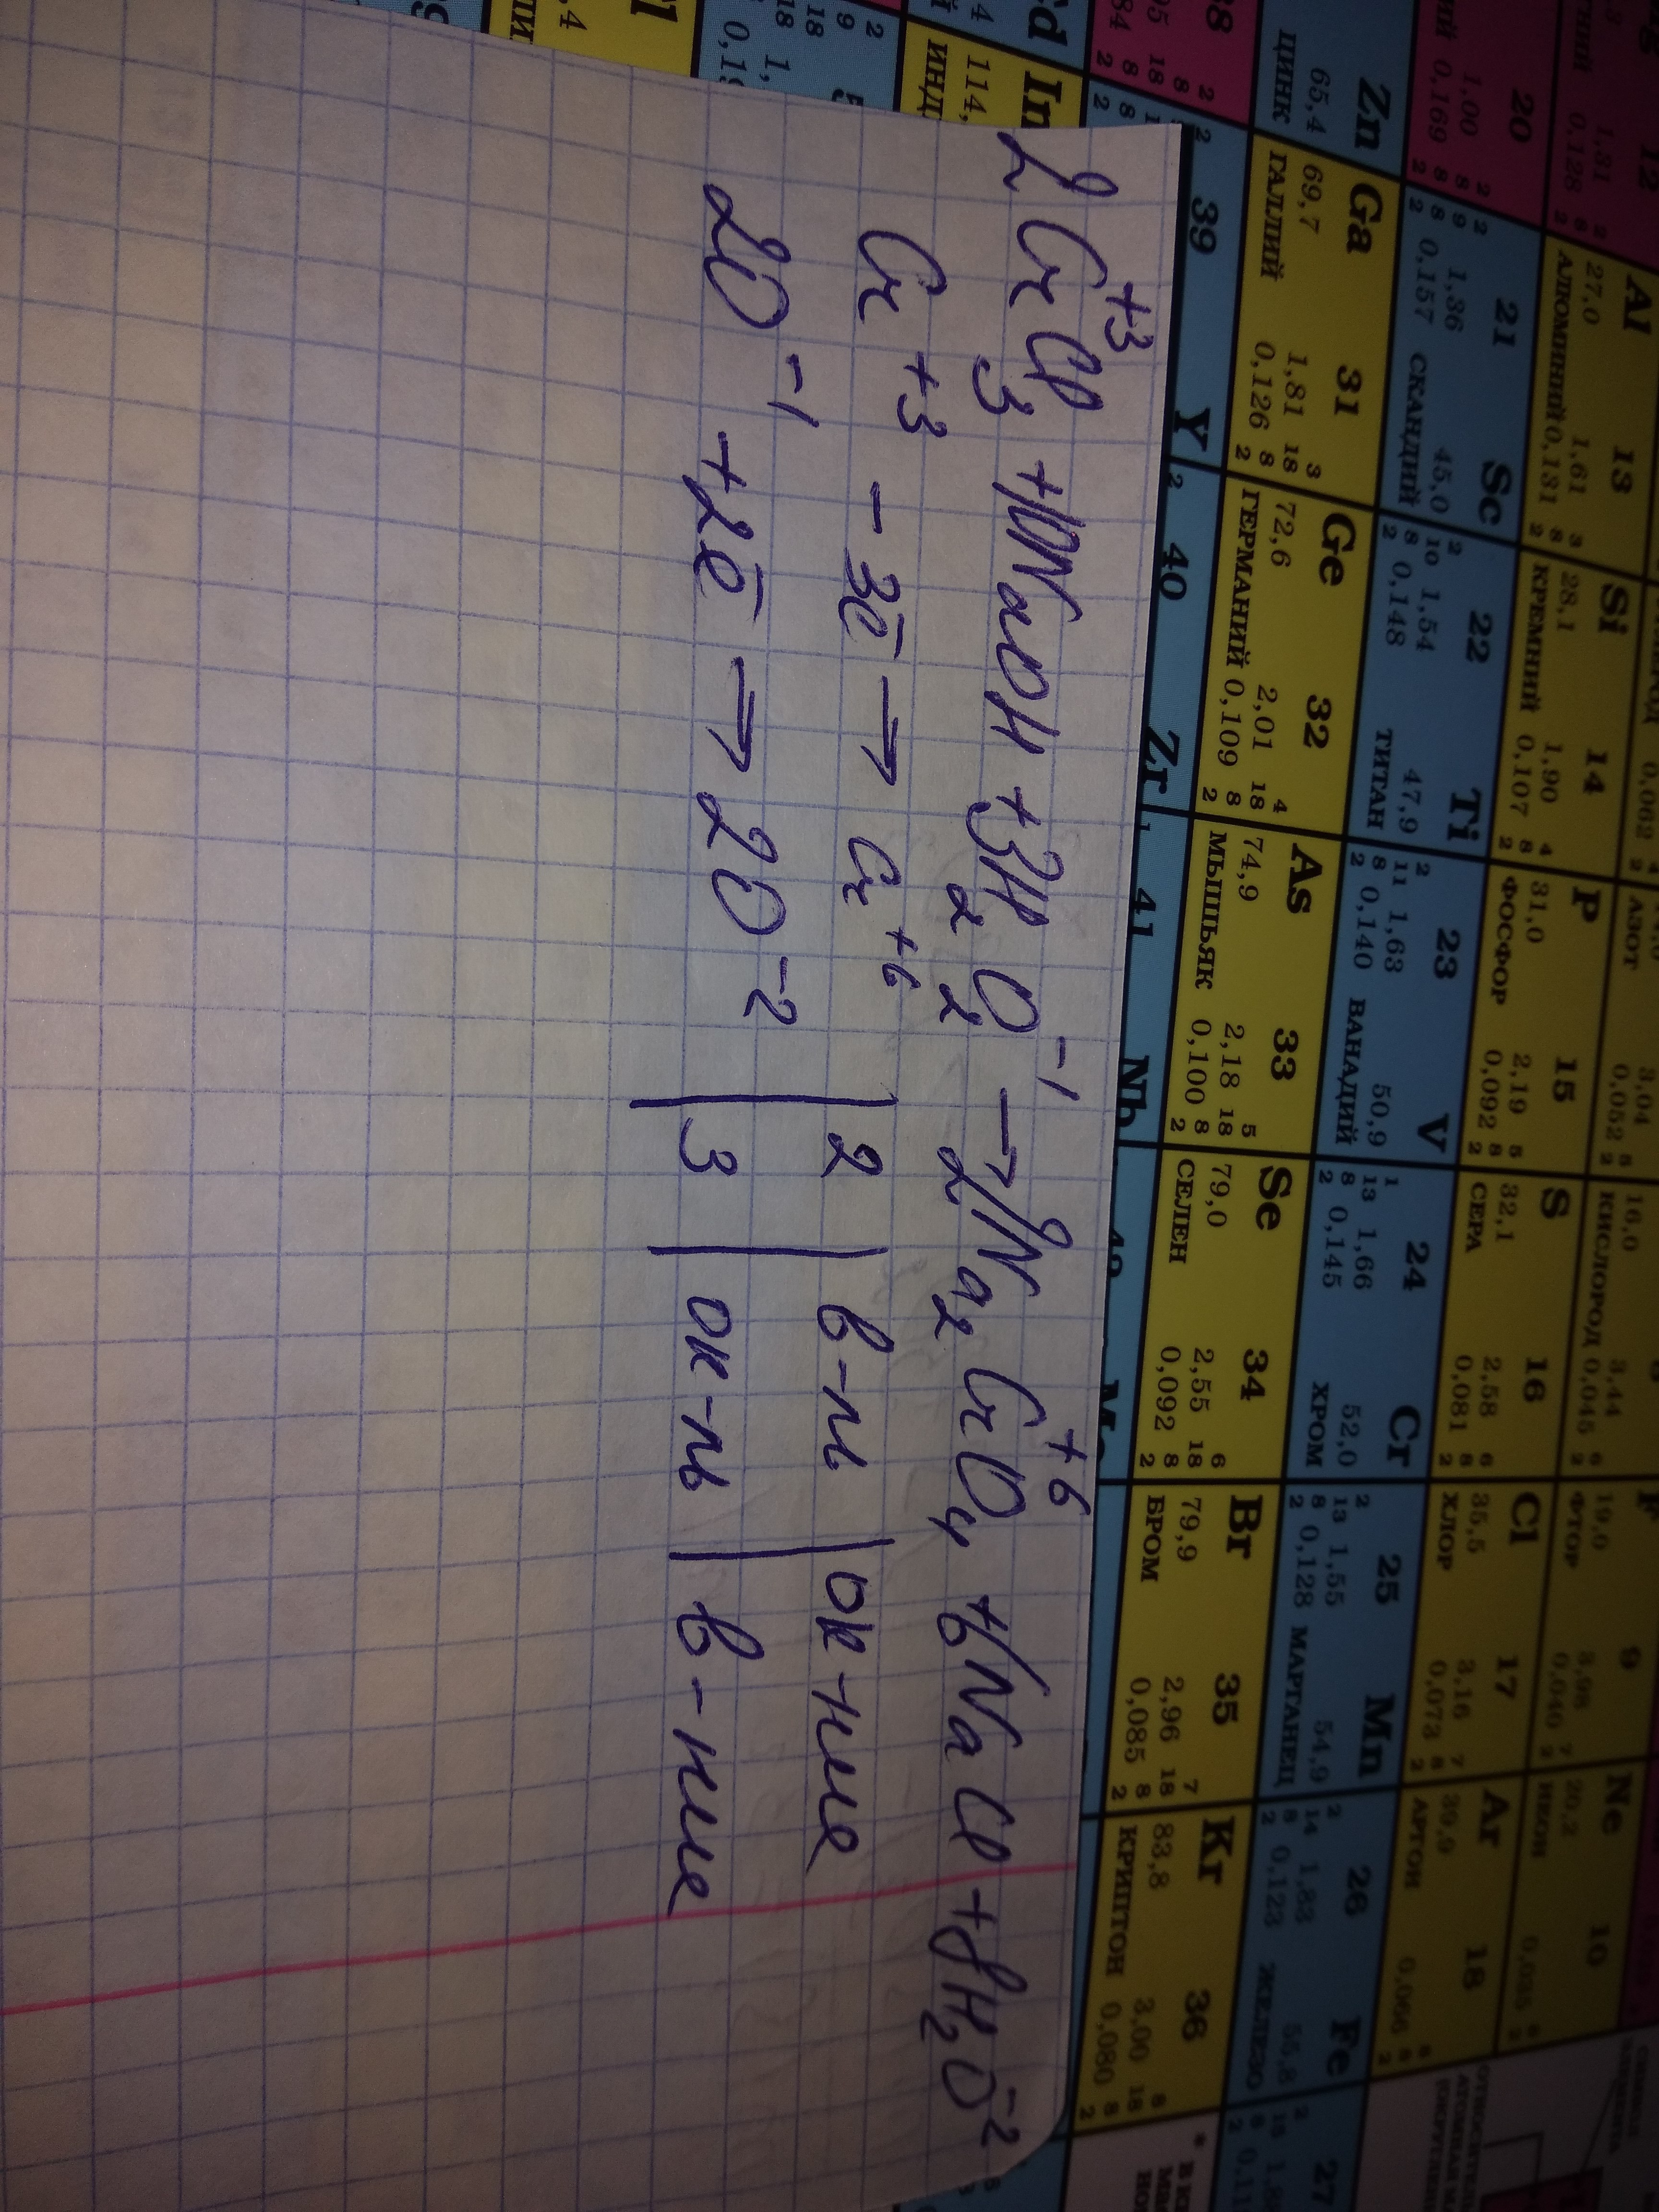 2Cr⁺³Cl₃ + 10NaOH + 3H₂O₂⁻¹ → 2Na₂Cr⁺⁶O₄ + 6NaCl + 8H₂O⁻²
Cr⁺³ - 3ē → Cr⁺⁶ | 2 | в-ль | ок-ние
2O⁻¹ + 2ē → 2O⁻² | 3 | ок-ль | в-ние
Al 13
27,0 1,61
АЛЮМИНИЙ 0,181
Si 14
28,1 1,90
КРЕМНИЙ 0,107
P 15
31,0 2,19
ФОСФОР 0,092
S 16
32,1 2,58
СЕРА 0,081
Cl 17
35,5 3,16
ХЛОР 0,073
Ar 18
АРГОН 0,066
АЗОТ
16,0 3,44
КИСЛОРОД 0,045
F 9
19,0 3,98
ФТОР 0,040
Ne 10
20,2
НЕОН
20
1,00
0,169
21 Sc
1,36 45,0
0,157 СКАНДИЙ
22 Ti
1,54 47,9
0,148 ТИТАН
23 V
1,63 50,9
0,140 ВАНАДИЙ
24 Cr
1,66 52,0
0,145 ХРОМ
25 Mn
1,55 54,9
0,128 МАРГАНЕЦ
26 Fe
1,83 55,8
0,123 ЖЕЛЕЗО
27
Zn
65,4
ЦИНК
Ga 31
69,7 1,81
ГАЛЛИЙ 0,126
Ge 32
72,6 2,01
ГЕРМАНИЙ 0,109
As 33
74,9 2,18
МЫШЬЯК 0,100
Se 34
79,0 2,55
СЕЛЕН 0,092
Br 35
79,9 2,96
БРОМ 0,085
Kr 36
83,8 3,00
КРИПТОН 0,080
39 Y
40 Zr
41 Nb
Cd
In
114,
ИНД